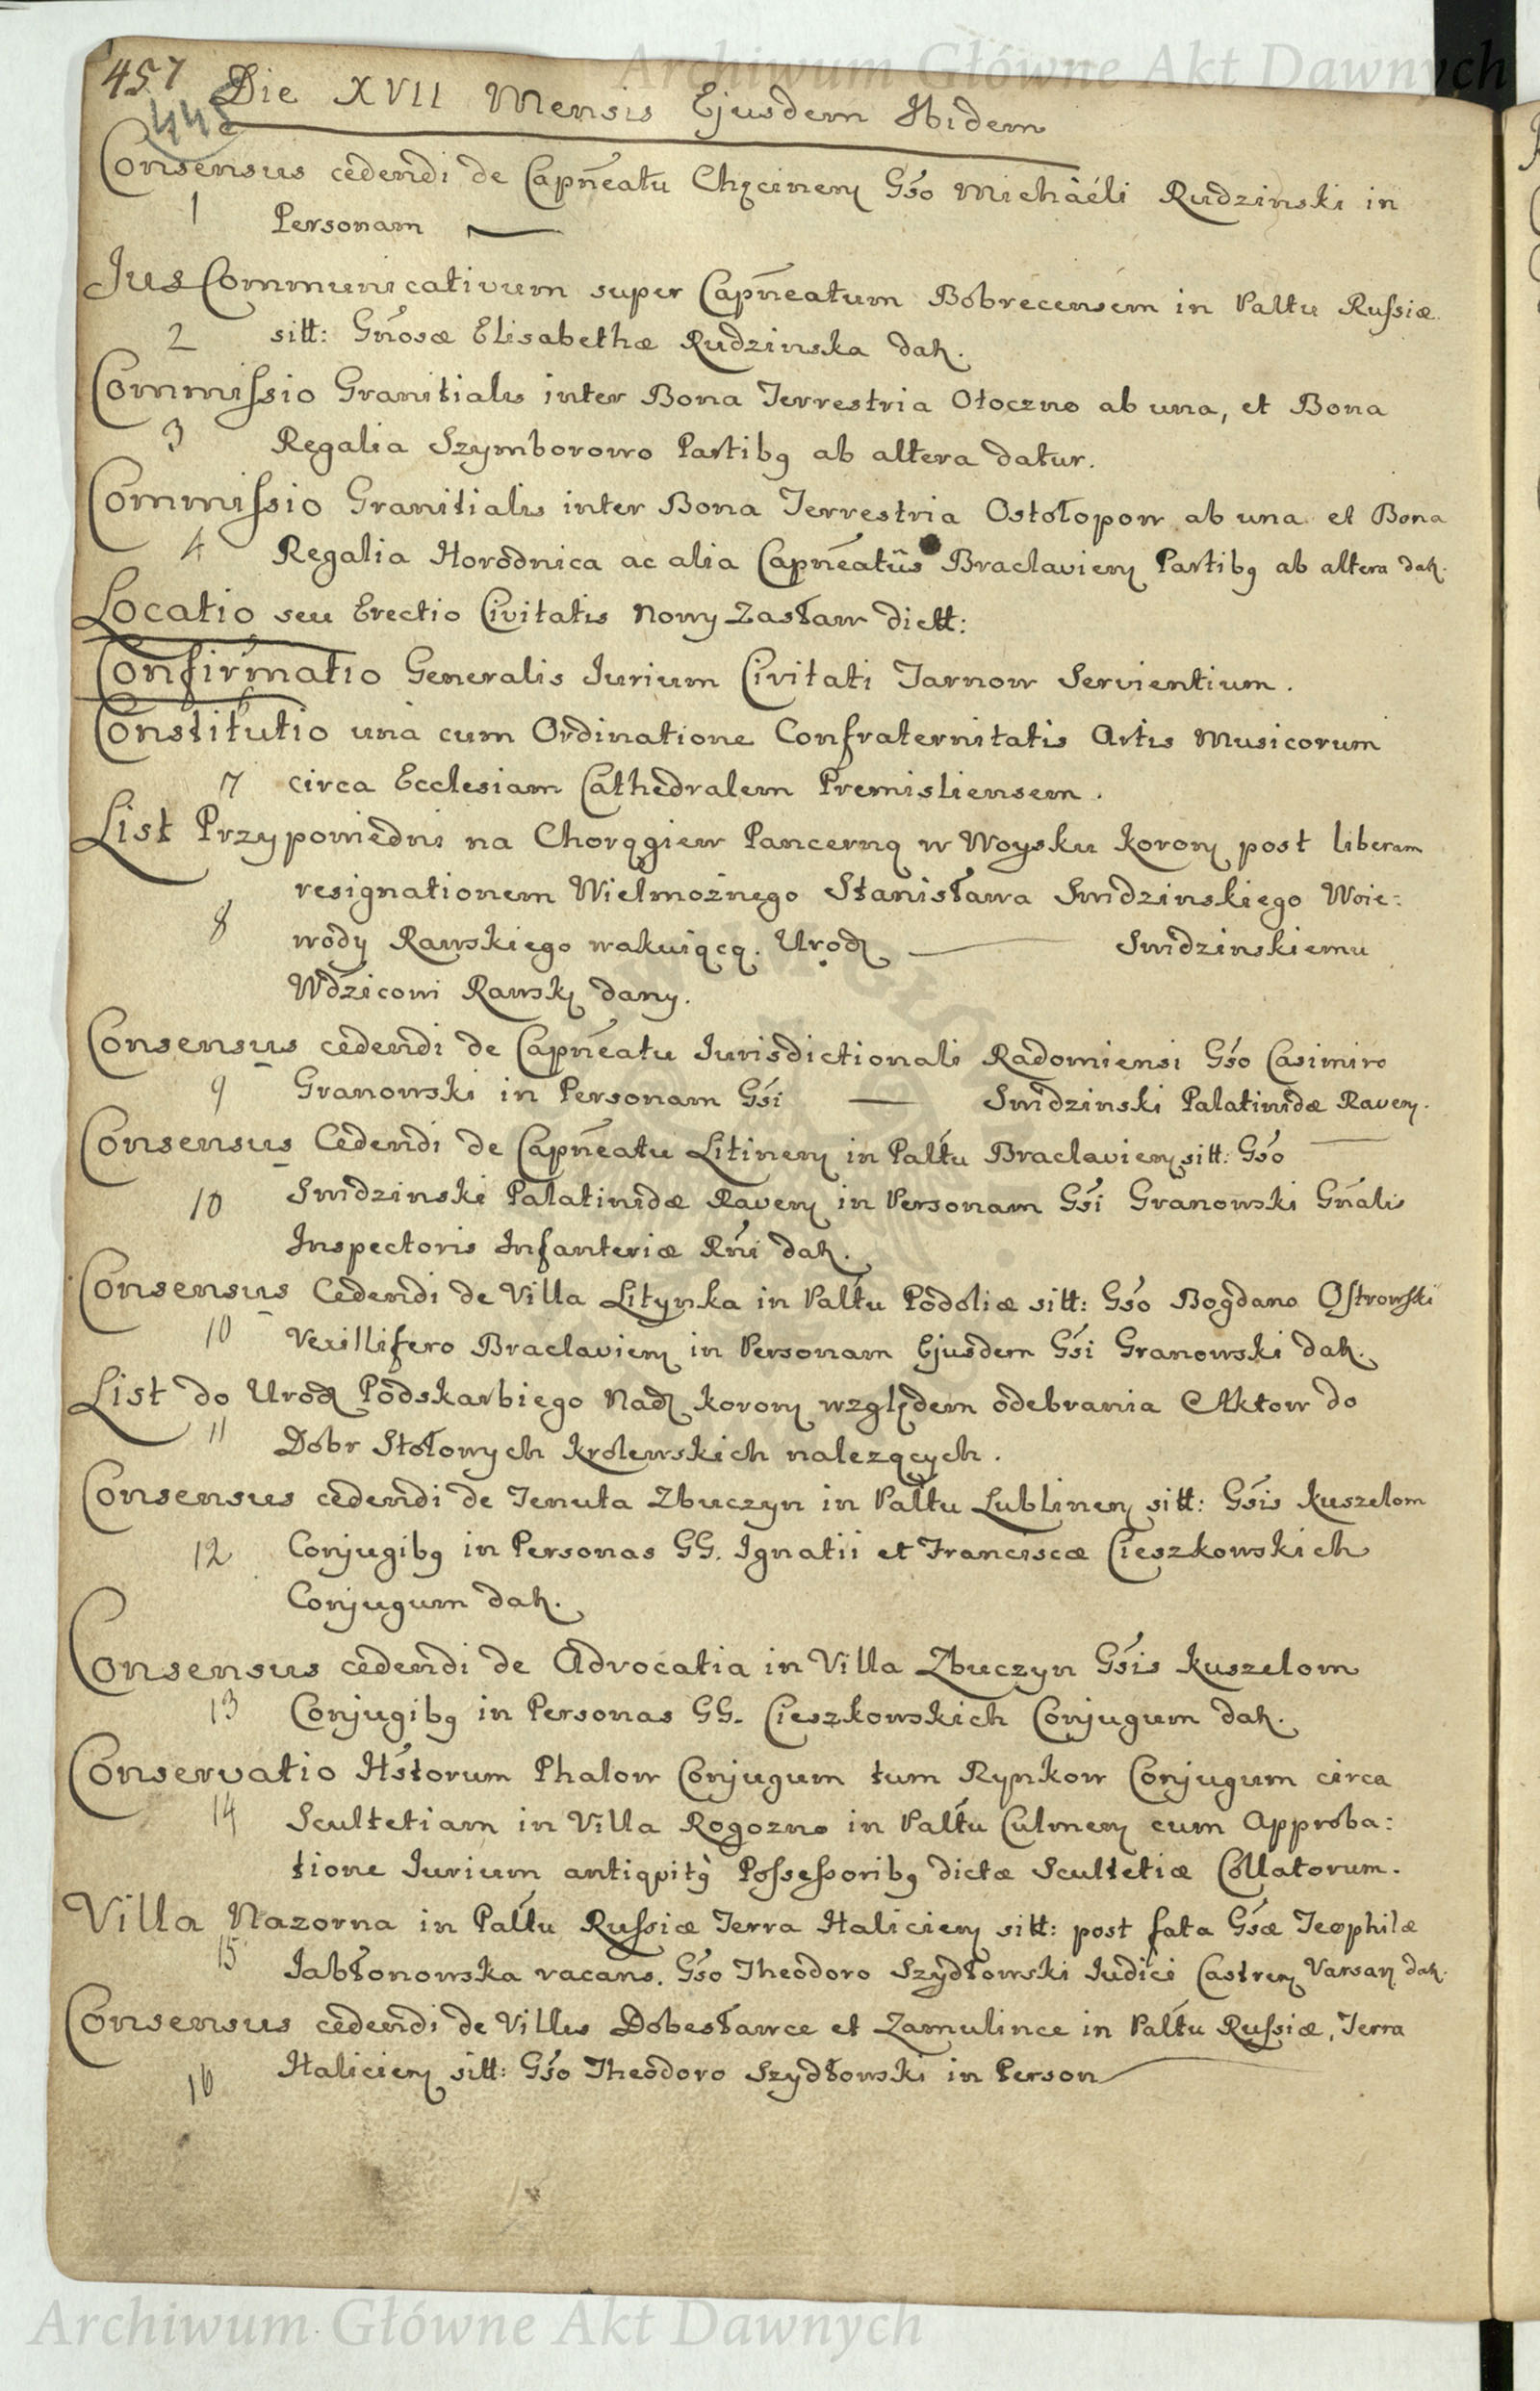 Archiwum Główne Akt Dawnych
457
445
Die XVII Mensis Ejusdem Ibidem
Consensus cedendi de Capñeatu Chęcineñ Gso Michaeli Rudzinski in
1 Personam
Jus Communicativum super Capñeatum Bobrecensem in Palttu Russiæ
2 sitt: Gñosæ Elisabethæ Rudzinska dat.
Commissio Granitialis inter Bona Terrestria Otoczno ab una, et Bona
3 Regalia Szymborowo Partibq ab altera datur.
Commissio Granitialis inter Bona Terrestria Ostołopow ab una et Bona
4 Regalia Horodnica ac alia Capñeatûs Braclavieñ Partibq ab altera dat.
Locatio seu Erectio Civitatis Nowy Zasław dictt:
Confirmatio Generalis Jurium Civitati Tarnow Servientium.
Constitutio una cum Ordinatione Confraternitatis Artis Musicorum
7 circa Ecclesiam Cathedralem Premisliensem.
List Przypowiedni na Chorągiew Pancerną w Woysku koroñ post liberam
resignationem Wielmożnego Stanisława Swidzinskiego Woie:
8 wody Rawskiego wakuiącą. Urodz Swidzinskiemu
Wdzicowi Rawsk dany.
Consensus cedendi de Capñeatu Jurisdictionali Radomiensi Gso Casimiro
9 Granowski in Personam Gsi Swidzinski Palatinidæ Raveñ.
Consensus Cedendi de Capñeatu Litineñ in Palttu Braclavieñ sitt: Gso
10 Swidzinski Palatinidæ Raveñ in Personam Gsi Granowski Gñalis
Inspectoris Infanteriæ Rñi dat.
Consensus Cedendi de Villa Litynka in Palttu Podoliæ sitt: Gso Bogdano Ostrowski
10 Vexillifero Braclavieñ in Personam Ejusdem Gsi Granowski dat.
List do Urodz Podskarbiego Nadz koroñ względem odebrania Aktow do
11 Dobr Stołowych krolewskich nalezących.
Consensus cedendi de Tenuta Zbuczyn in Palttu Lublineñ sitt: Gsis kuszelom
12 Conjugibq in Personas GG. Ignatii et Franciscæ Cieszkowskich
Conjugum dat.
Consensus cedendi de Advocatia in Villa Zbuczyn Gsis kuszelom
13 Conjugibq in Personas GG. Cieszkowskich Conjugum dat.
Conservatio Hstorum Phalow Conjugum tum Rynkow Conjugum circa
14 Scultetiam in Villa Rogozno in Palttu Culmeñ cum Approba:
tione Jurium antiqvitq Possessoribq dictæ Scultetiæ Collatorum.
Villa Nazorna in Palttu Russiæ Terra Halicieñ sitt: post fata Gsæ Teophilæ
15 Jabłonowska vacans. Gso Theodoro Szydłowski Judici Castreñ Varsañ dat.
Consensus cedendi de Villis Dobesławce et Zamulince in Palttu Russiæ, Terra
16 Halicieñ sitt: Gso Theodoro Szydłowski in Person
Archiwum Główne Akt Dawnych